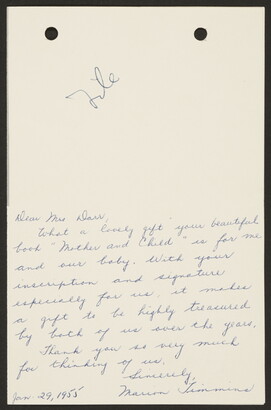 File
Dear Mrs Darr,
What a lovely gift your beautiful
book "Mother and Child" is for me
and our baby. With your
inscription and signature
especially for us, it makes
a gift to be highly treasured
by both of us over the years.
Thank you so very much
for thinking of us.
Sincerely,
Jan. 29, 1955 Marion Timmins